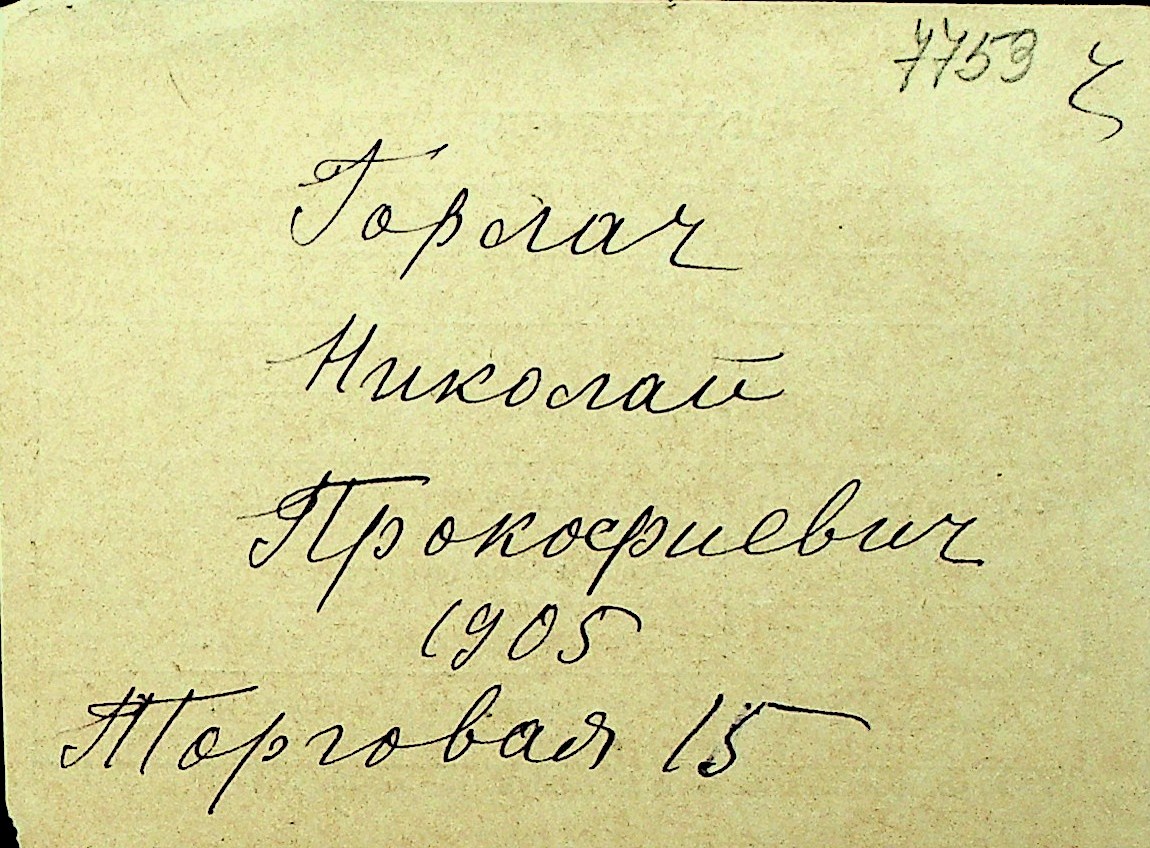 7753
Горлач
Николай
Прокофиевич
1905
Торговая 15